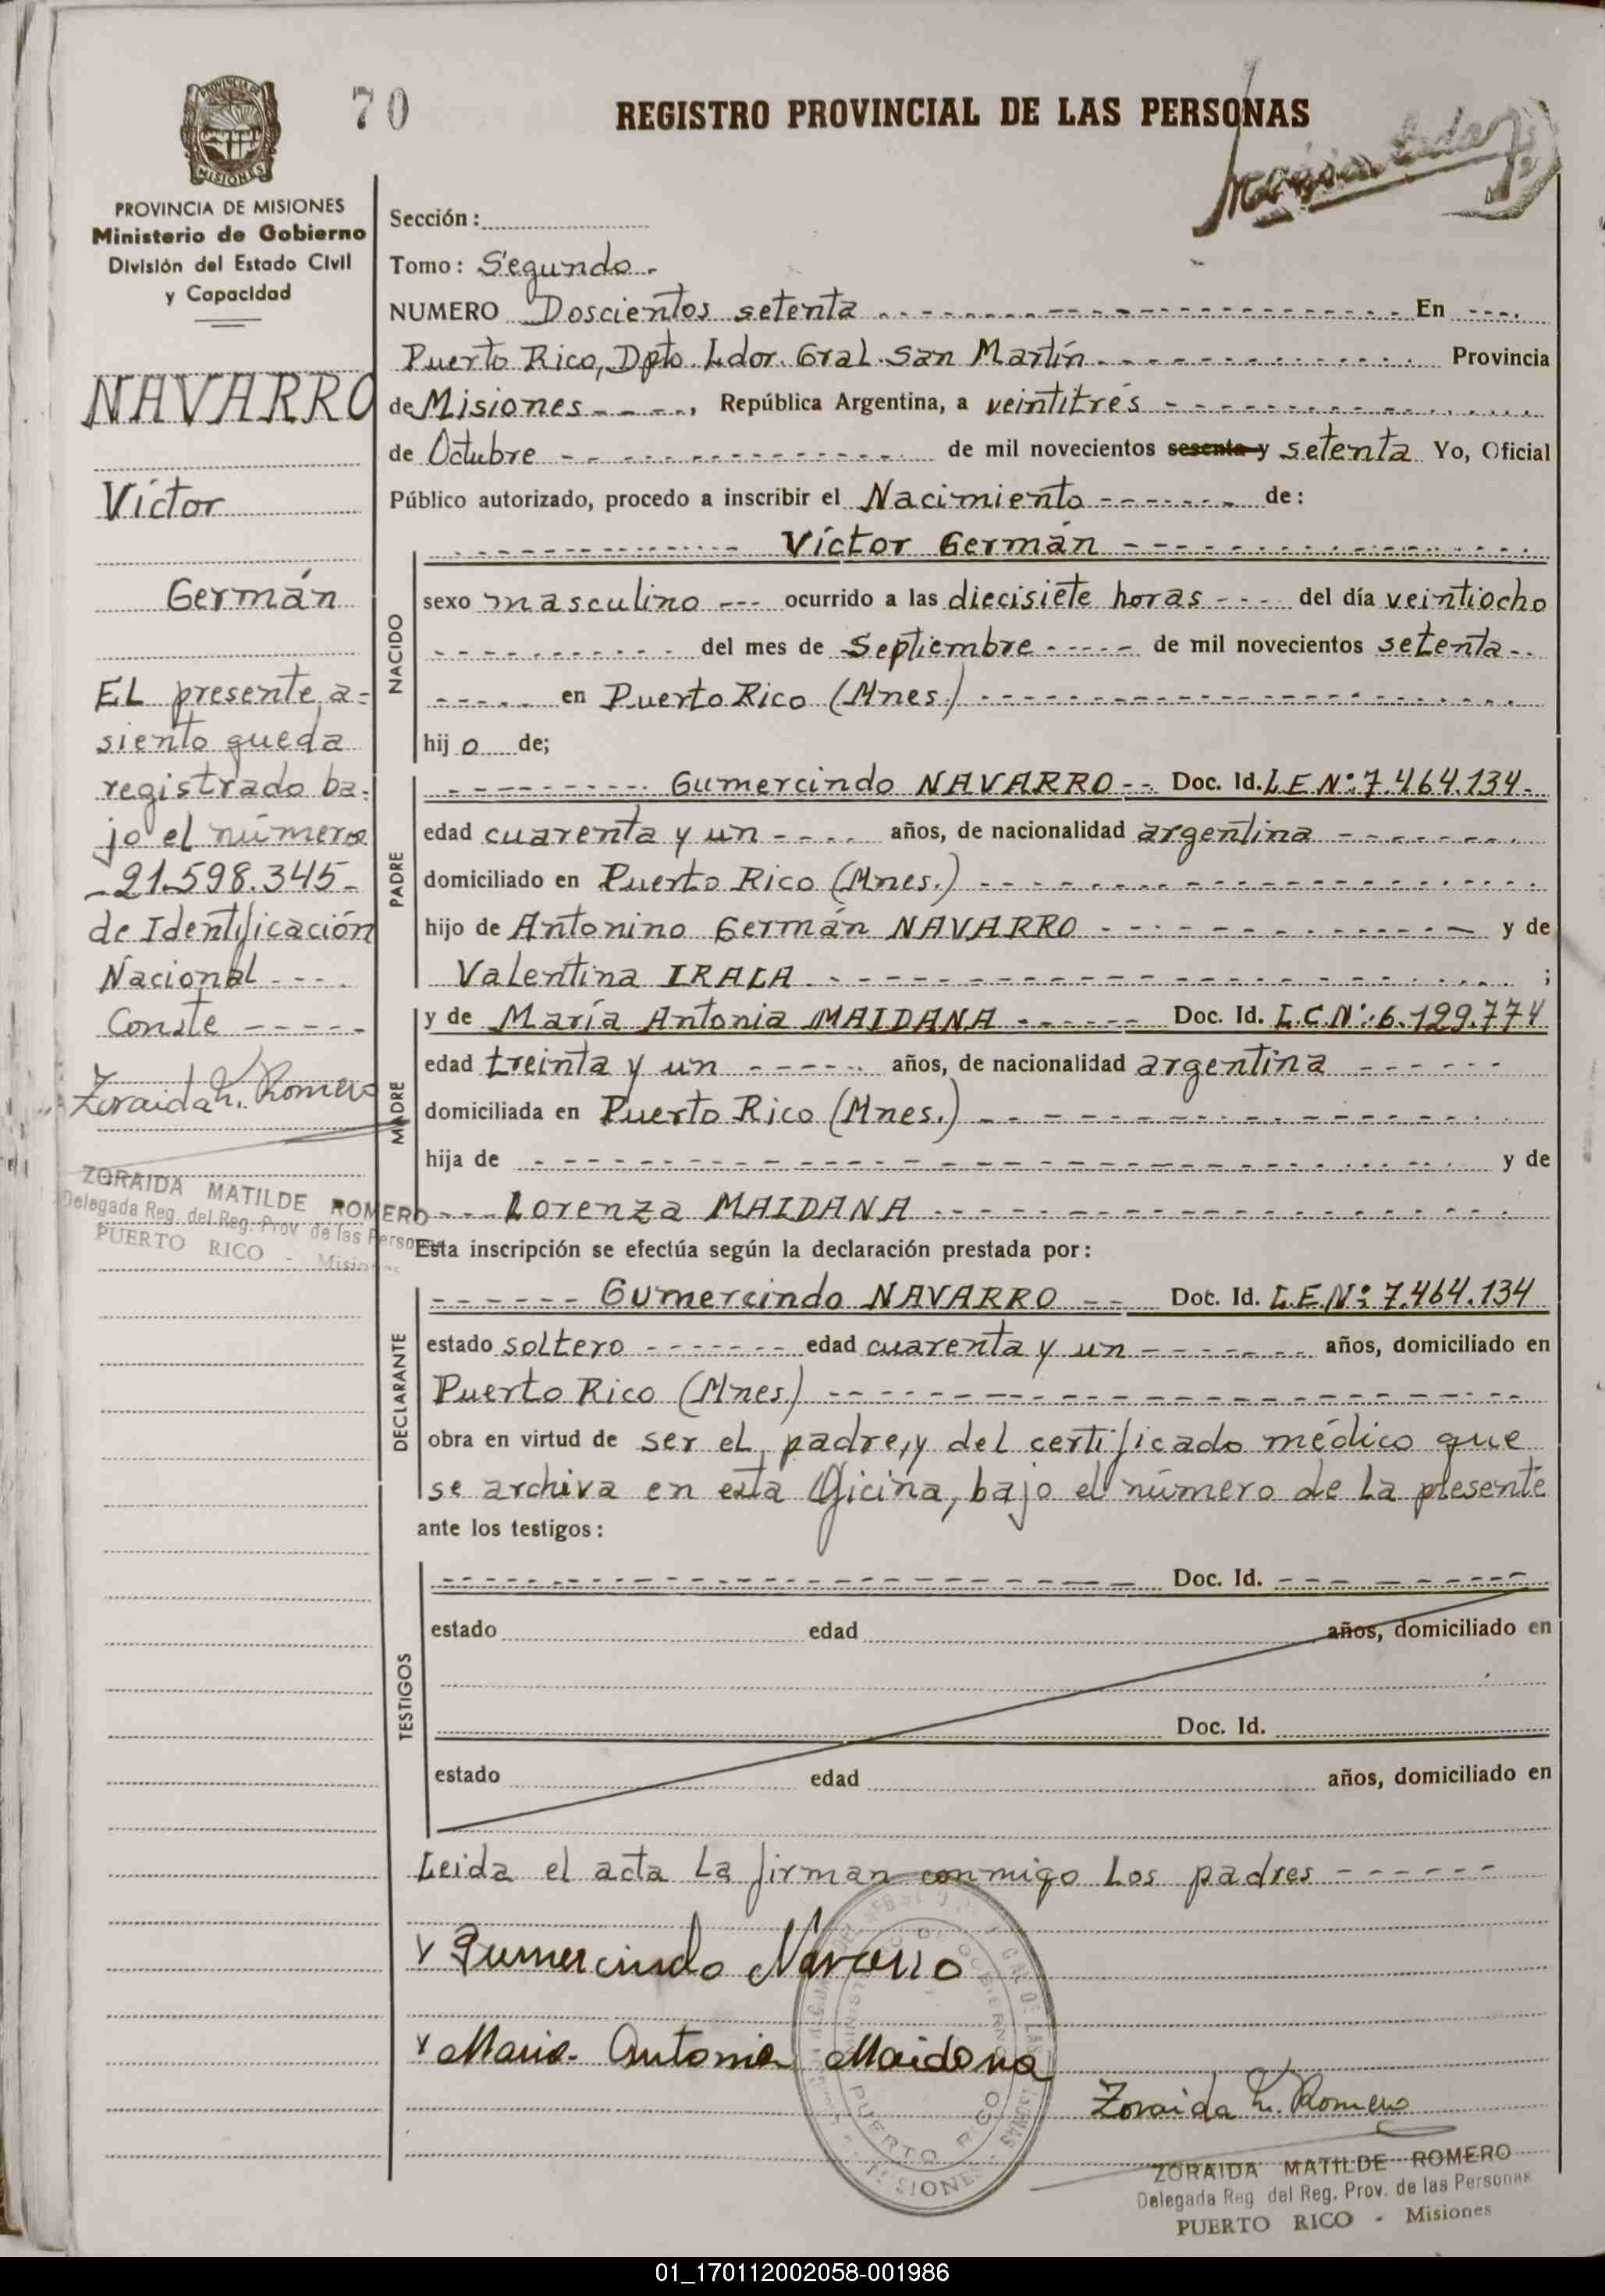 70
REGISTRO PROVINCIAL DE LAS PERSONAS
PROVINCIA DE
MISIONES
PROVINCIA DE MISIONES
Ministerio de Gobierno
División del Estado Civil
y Capacidad
NAVARRO
Víctor
Germán
EL presente a=
siento queda
registrado ba=
jo el número
-21.598.345-
de Identificación
Nacional - - -
Conste - - - - -
Zoraida M. Romero
ZORAIDA MATILDE ROMERO
Delegada Reg. del Reg. Prov. de las Personas
PUERTO RICO - Misiones
Sección:
Tomo: Segundo.-
NUMERO Doscientos setenta - - - En - - -
Puerto Rico, Dpto. Ldor. Gral. San Martín - - - Provincia
de Misiones - - - -, República Argentina, a veintitrés - - -
de Octubre - - - de mil novecientos sesenta y setenta Yo, Oficial
Público autorizado, procedo a inscribir el Nacimiento - - - de:
NACIDO
- - - Víctor Germán - - -
sexo masculino - - - ocurrido a las diecisiete horas - - - del día veintiocho
- - - del mes de Septiembre - - - de mil novecientos setenta - -
- - - en Puerto Rico (Mnes.) - - -
hijo de;
PADRE
- - - Gumercindo NAVARRO - - Doc. Id. L.E.Nº: 7.464.134.-
edad cuarenta y un - - - años, de nacionalidad argentina - - -
domiciliado en Puerto Rico (Mnes.) - - -
hijo de Antonino Germán NAVARRO - - - y de
Valentina IRALA - - - ;
MADRE
y de María Antonia MAIDANA - - - Doc. Id. L.C.Nº: 6.129.774
edad treinta y un - - - años, de nacionalidad argentina - - -
domiciliada en Puerto Rico (Mnes.) - - -
hija de - - - y de
- - - Lorenza MAIDANA - - -
Esta inscripción se efectúa según la declaración prestada por:
DECLARANTE
- - - Gumercindo NAVARRO - - Doc. Id. L.E.Nº: 7.464.134
estado soltero - - - edad cuarenta y un - - - años, domiciliado en
Puerto Rico (Mnes.) - - -
obra en virtud de ser el padre, y del certificado médico que
se archiva en esta Oficina, bajo el número de la presente
ante los testigos:
TESTIGOS
- - - Doc. Id. - - -
estado edad años, domiciliado en
Doc. Id.
estado edad años, domiciliado en
Leida el acta la firman conmigo los padres - - -
x Gumercindo Navarro
x Maria Antonia Maidana
MINISTERIO DE GOBIERNO
PUERTO RICO
MISIONES
Zoraida M. Romero
ZORAIDA MATILDE ROMERO
Delegada Reg. del Reg. Prov. de las Personas
PUERTO RICO - Misiones
01_170112002058-001986